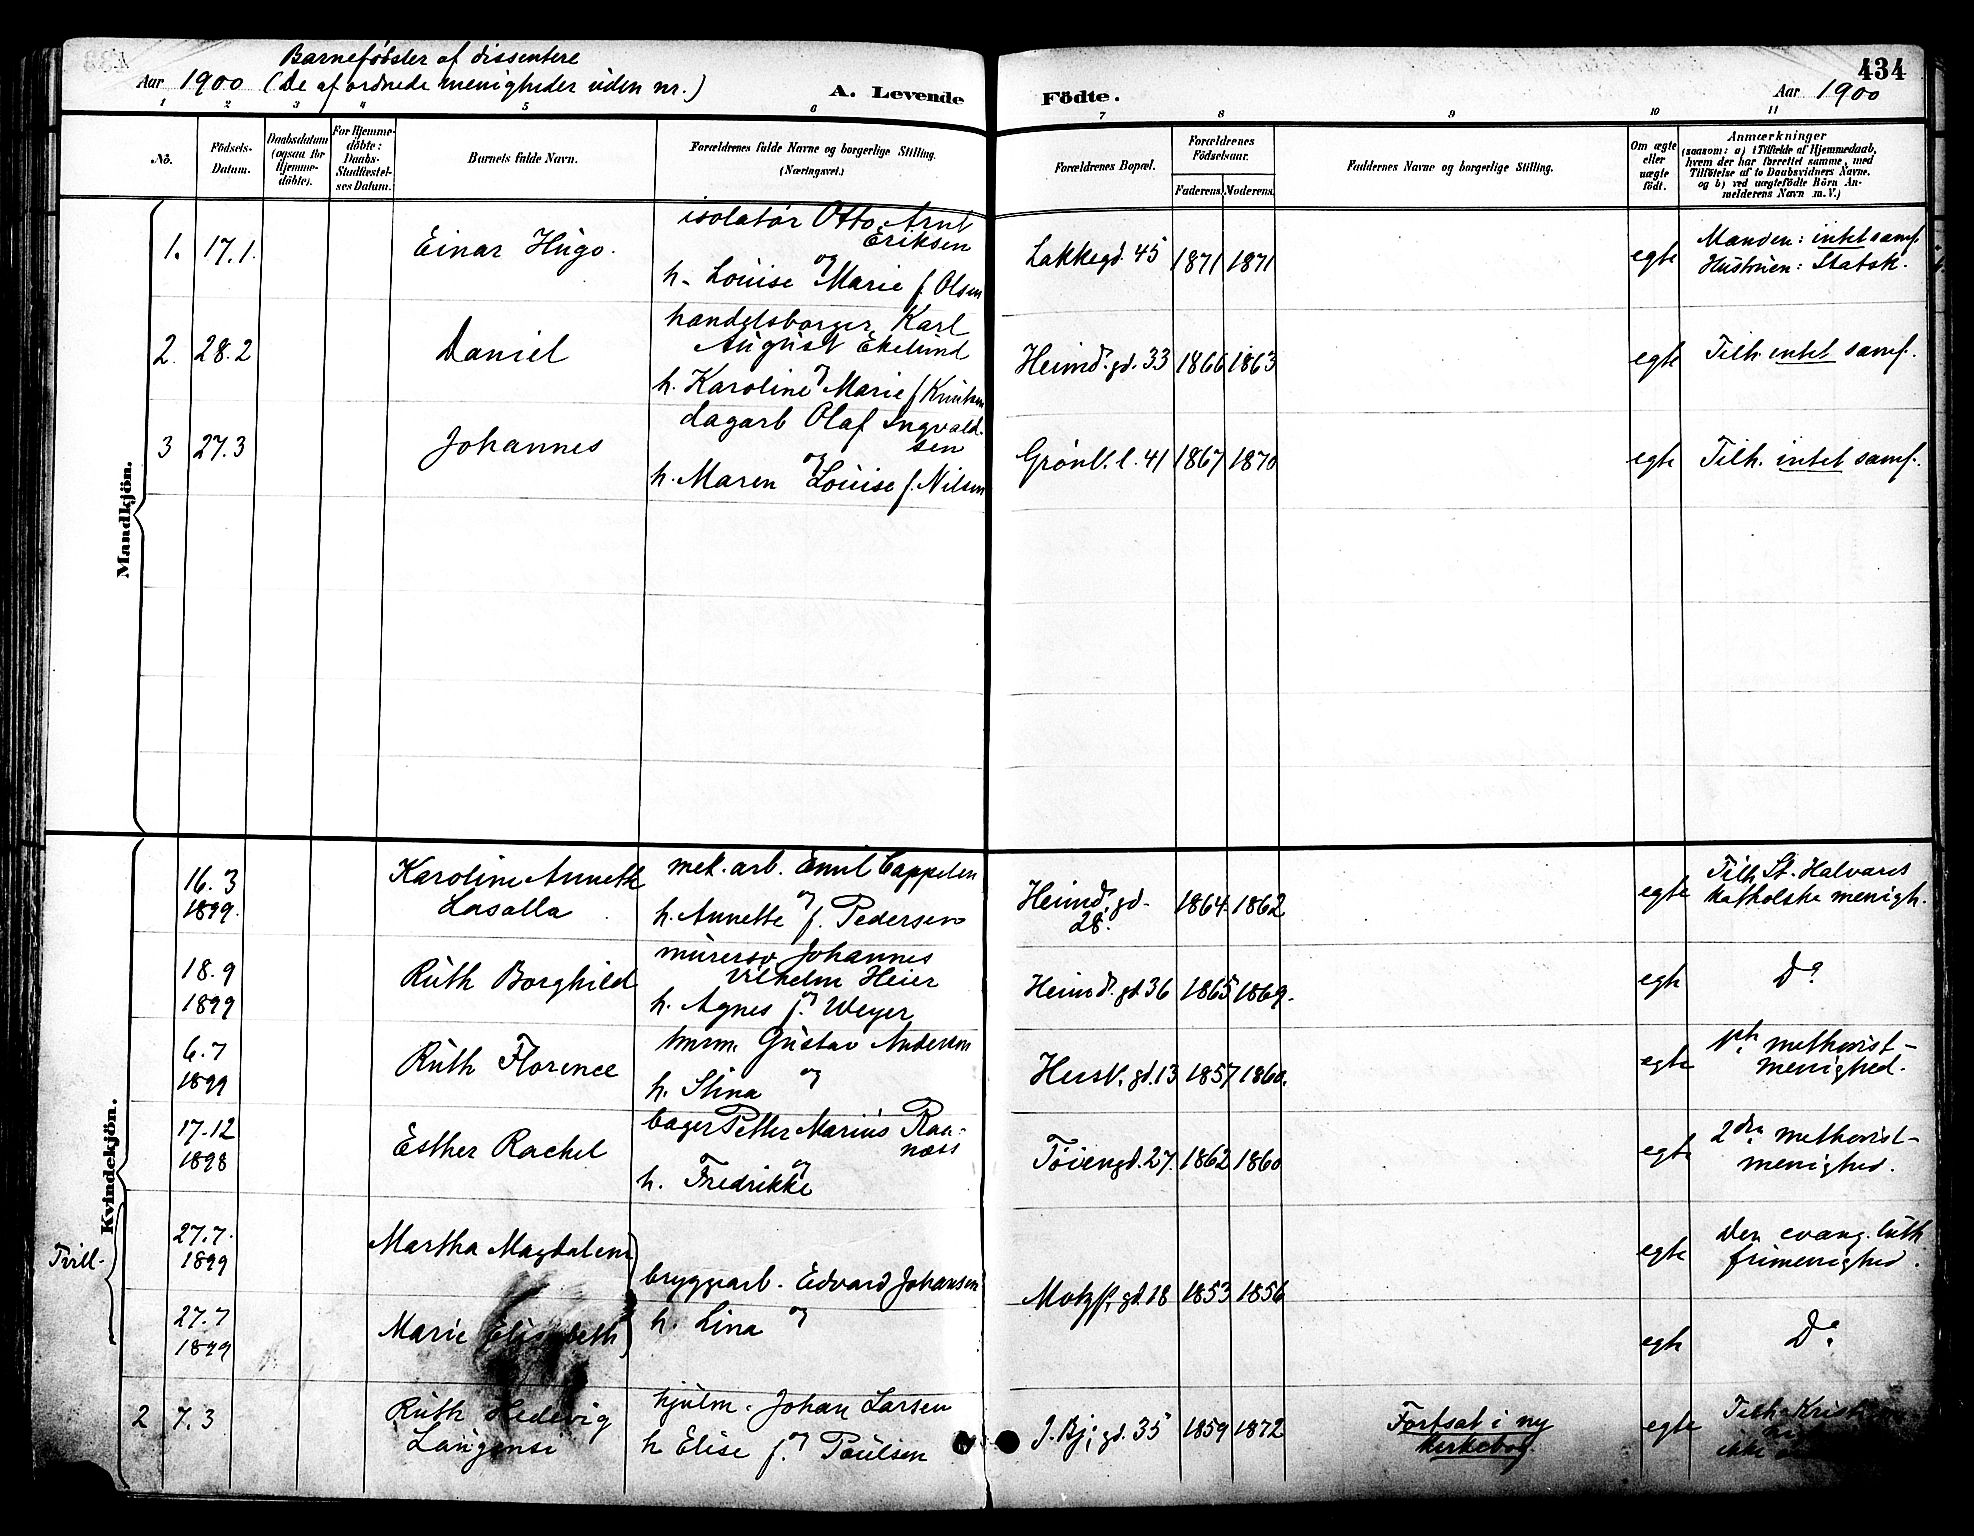 Barnefödsler af dissentere
Aar 1900 (De af ordnede menigheder uden nr.)
A. Levende Födte.
434
Aar 1900
1 2 3 4 5 6 7 8 9 10 11
No.
Födsels-Datum.
Daabsdatum (ogsaa for Hjemme-döbte).
For Hjemme-döbte: Daabs-Stadfæstel-ses Datum.
Barnets fulde Navn.
Forældrenes fulde Navne og borgerlige Stilling. (Næringsvei.)
Forældrenes Bopæl.
Forældrenes Födselsaar.
Faderens. Moderens.
Faddernes Navne og borgerlige Stilling.
Om ægte eller uægte födt.
Anmærkninger
(saasom: a) i Tilfælde af Hjemmedaab, hvem der har forrettet samme, med Tilföielse af to Daabsvidners Navne. og b) ved uægtefödte Börn An-melderens Navn m.V.)
Mandkjön.
1. 17.1. Einar Hugo. isolatör Otto Arnt Eriksen
og
h. Louise Marie f. Olsen
Lakkegd. 45 1871 1871 egte Manden: intet samf.
Hustruen: Statsk.
2. 28.2 Daniel handelsborger Karl
August Ekelund
og
h. Karoline Marie f. Knutsen
Heimd. gd. 33 1866 1863 egte Tilh. intet samf.
3 27.3 Johannes dagarb Olaf Ingvald-
sen
og
h. Maren Louise f. Nilsen
Grönl. l. 41 1867 1870 egte Tilh. intet samf.
Kvindekjön.
16.3
1899. Karoline Annette
Lasalla mek. arb. Emil Cappelen
og
h. Annette f. Pedersen
Heimd. gd.
28. 1864. 1862 egte Tilh. St. Halvards
katholske menigh.
18.9
1899 Ruth Borghild murersv. Johannes
Vilhelm Heier
og
h. Agnes f. Weyer
Heimd. gd. 36 1865 1869. egte Do
6.7
1899 Ruth Florence tmrm. Gustav Andersen
og
h. Stina
Hersl. gd. 13 1857 1860. egte 1ste methodist-
menighed.
17.12
1898 Esther Rachel bager Petter Marius Rau-
næss
og
h. Fredrikke
Töiengd. 27. 1862 1860 egte 2den methodist-
menighed.
Tvill.
27.7.
1899 Martha Magdalene
bryggarb. Edvard Johansen
og
h. Lina
Motzf. gd. 18 1853 1856 egte Den evang. luth.
frimenighed.
27.7
1899 Marie Elisabeth egte Do
2 7.3 Ruth Hedevig
Laugense hjulm. Johan Larsen
og
h Elise f. Paulsen
J. Bj. gd. 35 1859 1872 Fortsat i ny
kirkebog. egte Tilh. Krist
ikke